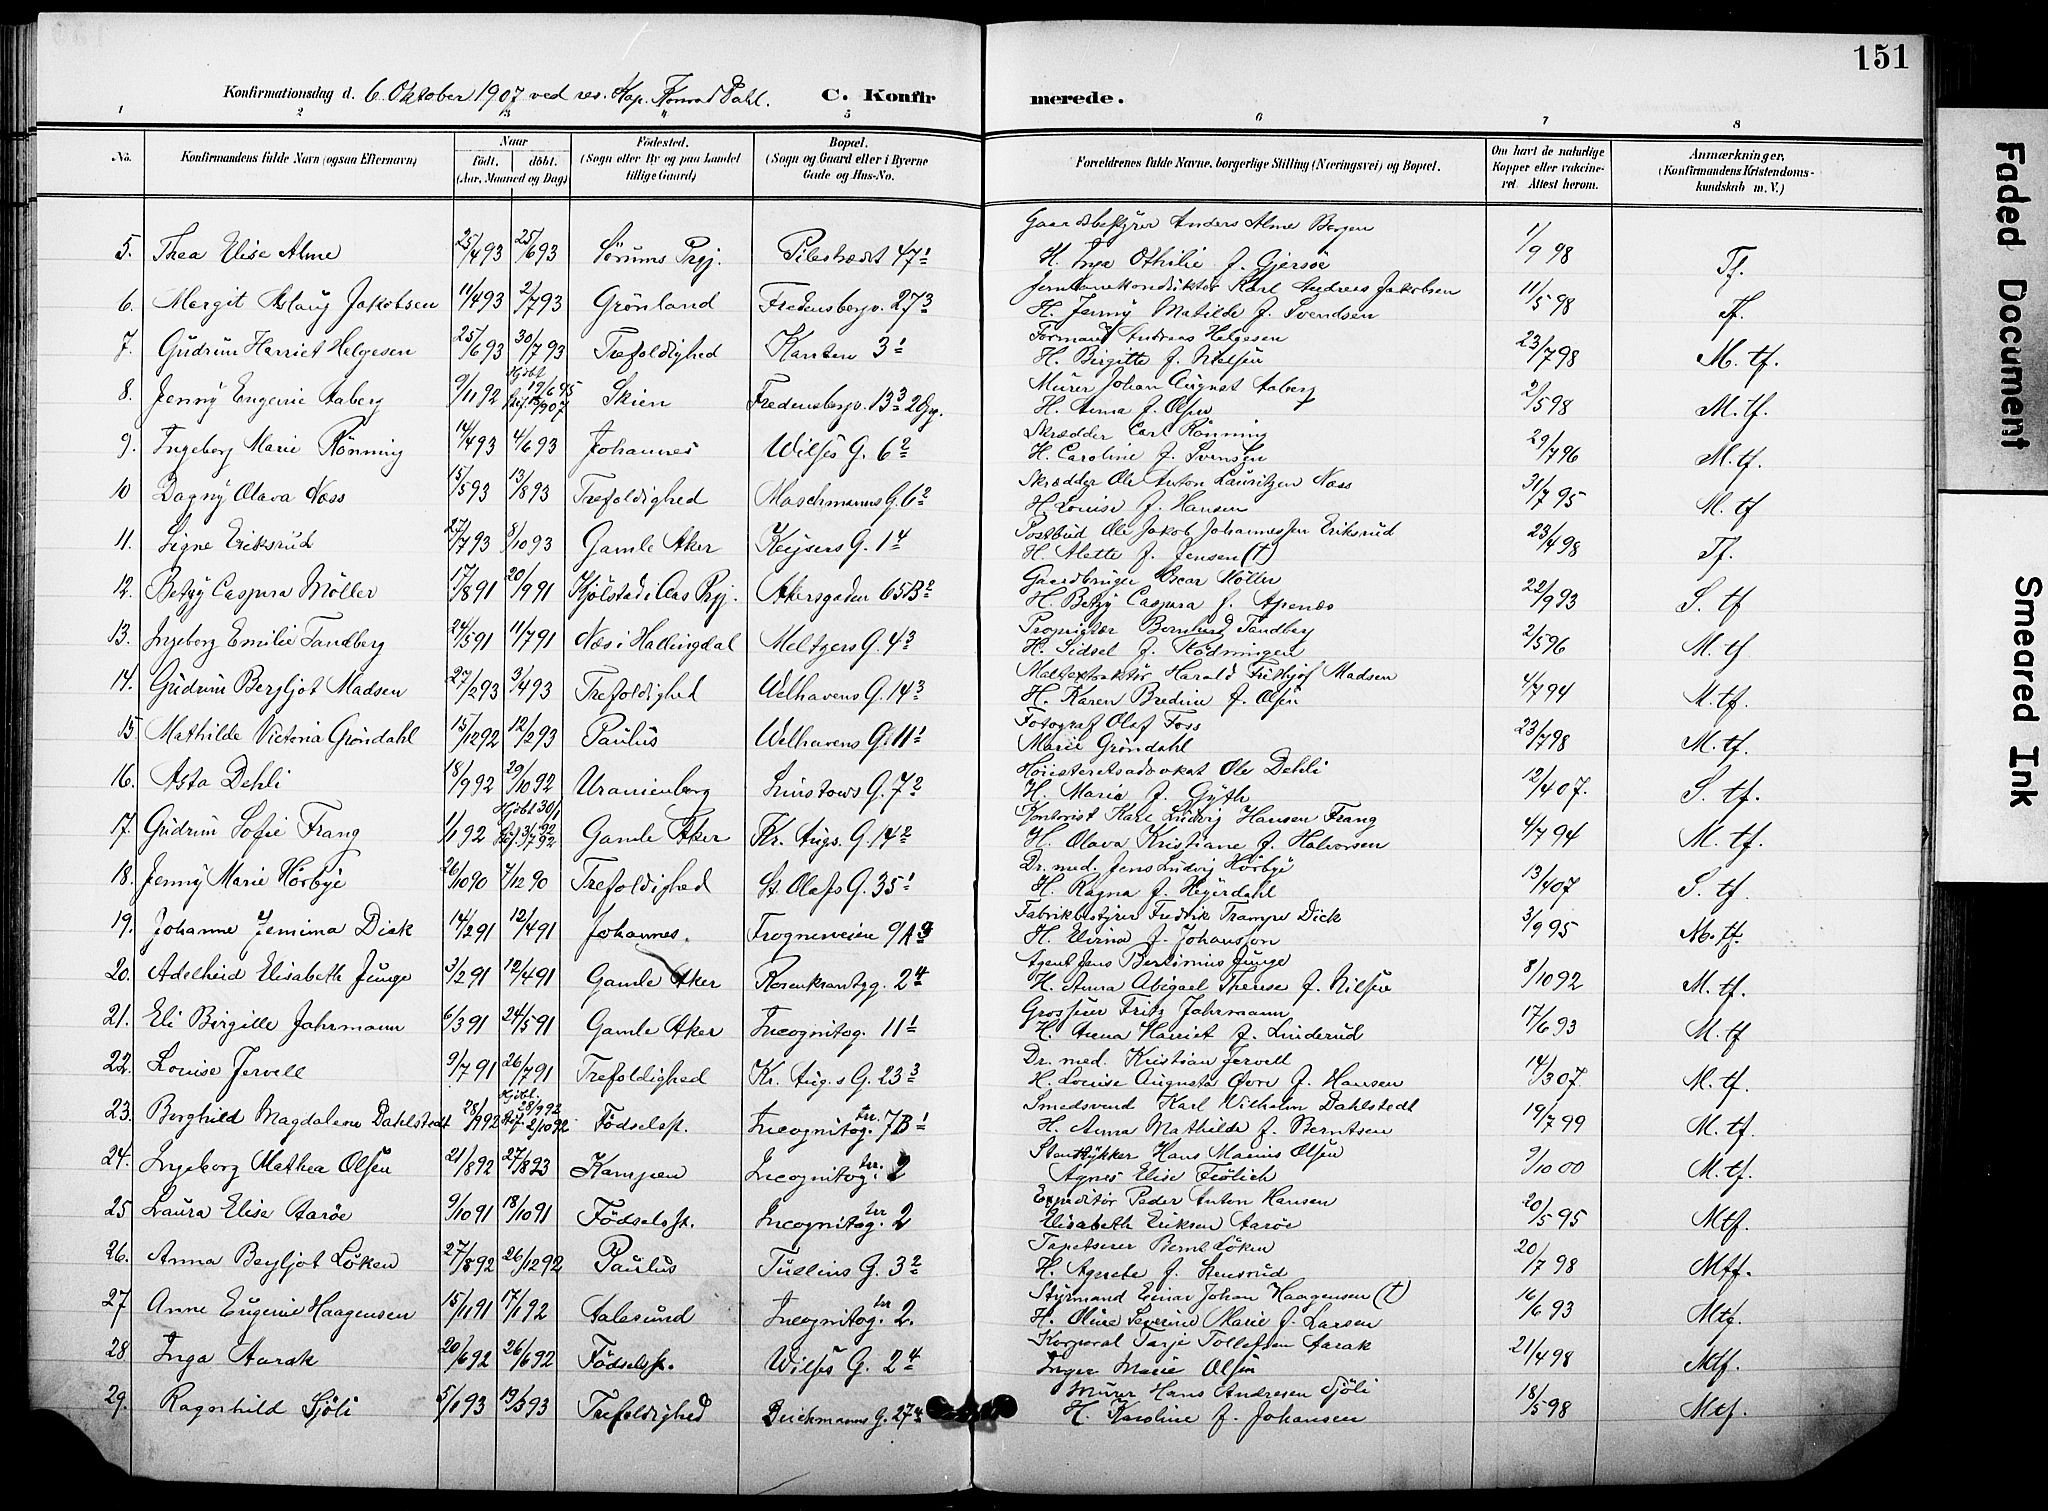 151
Konfirmationsdag d. 6. Oktober 1907 ved res. Kap. Konrad Dahl. C. Konfirmerede.
1 2 3 4 5 6 7 8
No. Konfirmandens fulde Navn (ogsaa Efternavn) Naar født. døbt. (Aar, Maaned og Dag) Fødested. (Sogn eller By og paa Landet tillige Gaard) Bopæl. (Sogn og Gaard eller i Byerne Gade og Hus-No. Forældrenes fulde Navne, borgerlige Stilling (Næringsvei) og Bopæl. Om havt de naturlige Kopper eller vakcineret. Attest herom. Anmærkninger, (Konfirmandens Kristendomskundskab m. V.)
Gaardsbestyrer Anders Alme Bergen
5. Thea Elise Alme 25/4 93 25/6 93 Sørums Prgj. Pilestrædet 47 1 H. Inga Othilie f. Gjersøe 1/9 98 Tf.
Jernbanekonduktør Karl Andreas Jakobsen
6. Margit Aslaug Jakobsen 11/4 93 2/7 93 Grønland Fredensborgv. 27 3 H. Jenny Matilde f. Svendsen 11/5 98 Tf.
Formand Andreas Helgesen
7. Gudrun Harriet Helgesen 25/6 93 30/7 93 Trefoldighed Kanten 3 1 H. Birgitte f. Nielsen 23/7 98 M. tf.
Murer Johan August Aaberg
8. Jenny Eugenie Aaberg 9/11 92 Hjdbt. 19/6 95 Skien Fredensborgv. 13 3 2 Opg. H. Anna f. Olsen 2/5 98 M. tf.
Skrædder Carl Rønning
9. Ingeborg Marie Rønning 14/4 93 4/6 93 Johannes Wilses G. 6 2 H. Caroline f. Svensen 29/7 96 M. tf.
Skrædder Ole Anton Lauritzen Næss
10 Dagny Olava Næss 15/5 93 13/8 93 Trefoldighed Maschmanns G. 6 2 H. Louise f. Hansen 31/7 95 M. tf
Postbud Ole Jakob Johannessen Eriksrud
11. Signe Eriksrud 27/7 93 8/10 93 Gamle Aker Keysers G. 1 4 H. Alette f. Jensen (†) 23/4 98 Tf.
Gaardbruger Oscar Møller
12. Betzy Caspara Møller 17/8 91 20/9 91 Kjølstad i Aas Prgj. Akersgaden 65B 2 H. Betzy Caspara f. Apenæs 22/9 93 S. tf
Proprietær Bernhard Tandberg
13. Ingeborg Emilie Tandberg 24/5 91 11/7 91 Næs i Hallingdal Meltzers G. 4 3 H. Sidsel f. Rødningen 2/5 96 M. tf
Harald Frithjof Madsen
14. Gudrun Bergljot Madsen 27/2 93 3/4 93 Trefoldighed Welhavens G. 14 3 H. Karen Bredine f. Olsen 4/7 94 M. tf.
Fotograf Olaf Foss
15 Mathilde Victoria Grøndahl 15/12 92 12/2 93 Paulus Welhavens G. 11 1 Marie Grøndahl 23/7 98 M. tf.
Høiesteretsadvokat Ole Dehli
16. Asta Dehli 18/9 92 29/10 92 Uranienborg Linstows G. 7 2 H. Marie f. Gyth 12/4 07. S. tf.
Kontorist Karl Ludvig Hansen Frang
17. Gudrun Sofie Frang 1/1 92 Hjdbt 30/1 92 3/7 92 Gamle Aker Kr. Augs. G. 14 2 H. Olava Kristiane f. Halvorsen 4/7 94 M. tf.
Dr. med. Jens Ludvig Hørbye
18. Jenny Marie Hørbye 26/10 90 7/12 90 Trefoldighed St. Olafs G. 35 1 H. Ragna f. Heyerdahl 13/4 07 S. tf
Fabrikbestyrer Fredrik Trampe Dick
19. Johanne Jemima Dick 14/2 91 12/4 91 Johannes. Frogneveien 9A 3 H. Elvina f. Johansson 3/9 95 M. tf.
Agent Jens Junge
20. Adelheid Elisabeth Junge 3/2 91 12/4 91 Gamle Aker Rosenkrantzg. 2 4 H. Anna Abigael Therese f. Nilsen 8/10 92 M. tf.
Grosserer Fritz Jahrmann
21. Eli Birgitte Jahrmann 6/3 91 24/5 91 Gamle Aker Incognitog. 11 1 H. Anna Harriet f. Linderud 17/6 93 M. tf
Dr. med. Kristian Jervell
22. Louise Jervell 9/7 91 26/7 91 Trefoldighed Kr. Aug.s G. 23 3 H. Louise Augusta Øvre f. Hansen 14/3 07. M. tf.
Smedsvend Karl Vilhelm Dahlstedt
23. Borghild Magdalene Dahlstedt 28/1 1892 Hjdbt. 28/9 92 2/10 92 Fødselsst. Incognitog. tr. 7B 1 H. Anna Mathilde f. Berntsen 19/7 99 M. tf.
Hans Marius Olsen
24. Ingeborg Mathea Olsen 21/8 92 27/8 93 Kampen Incognitog. tr. 2 Agnes Elise Frølich 9/10 00 M. tf.
Expeditør Peder Anton Hansen
25 Laura Elise Aarøe 9/10 91 18/10 91 Fødselsst. Incognitog. tr 2 Elisabeth Eriksen Aarøe 20/5 95 Mtf.
Tapetserer Bernt Løken
26. Anna Bergljot Løken 27/8 92 26/12 92 Paulus Tullins G. 3 2 H. Agnethe f. Stensrud 20/7 98 Mtf.
Styrmand Einar Johan Haagensen (†)
27 Anne Eugenie Haagensen 15/11 91 17/1 92 Aalesund Incognitog. tr 2. H. Oline Severine Marie f. Larsen 16/6 93 Mtf.
Korporal Tarje Tollefsen Aarak
28 Inga Aarak 20/6 92 26/6 92 Fødselsst. Wilses G. 2 4 Inger Marie Olsen 21/4 98 Mtf.
Murer Hans Andresen Sjøli
29. Ragnhild Sjøli 5/1 93 19/3 93 Trefoldighed Deichmanns G. 27 4 H. Karoline f. Johansen 18/5 98 Mtf.
Faded Document
Smeared Ink